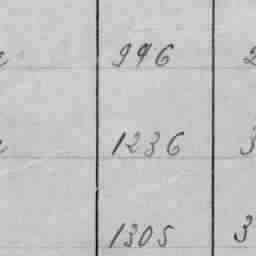 996 2
1236 3
1305 3